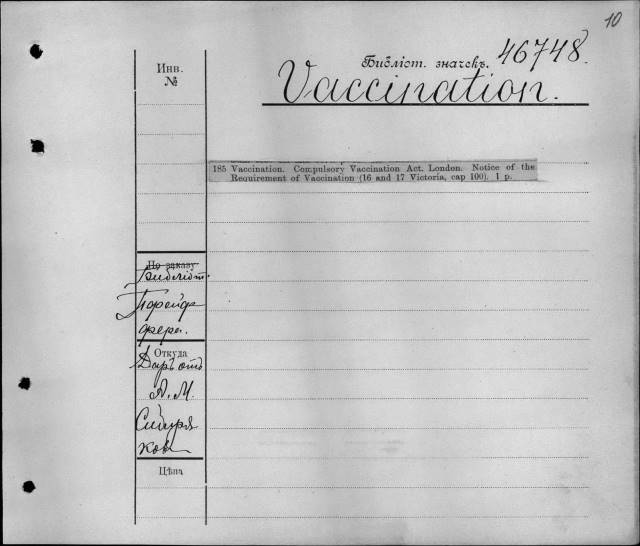 10
Инв.
№
Библіот. значекъ. 46748.
Vaccination.
185 Vaccination. Compulsory Vaccination Act. London. Notice of the
Requirement of Vaccination (16 and 17 Victoria, cap 100). 1 p.
По заказу
Библіот.
Порейд
фера.
Откуда
Даръ отъ
А. М.
Сибиря
кова
Цѣна